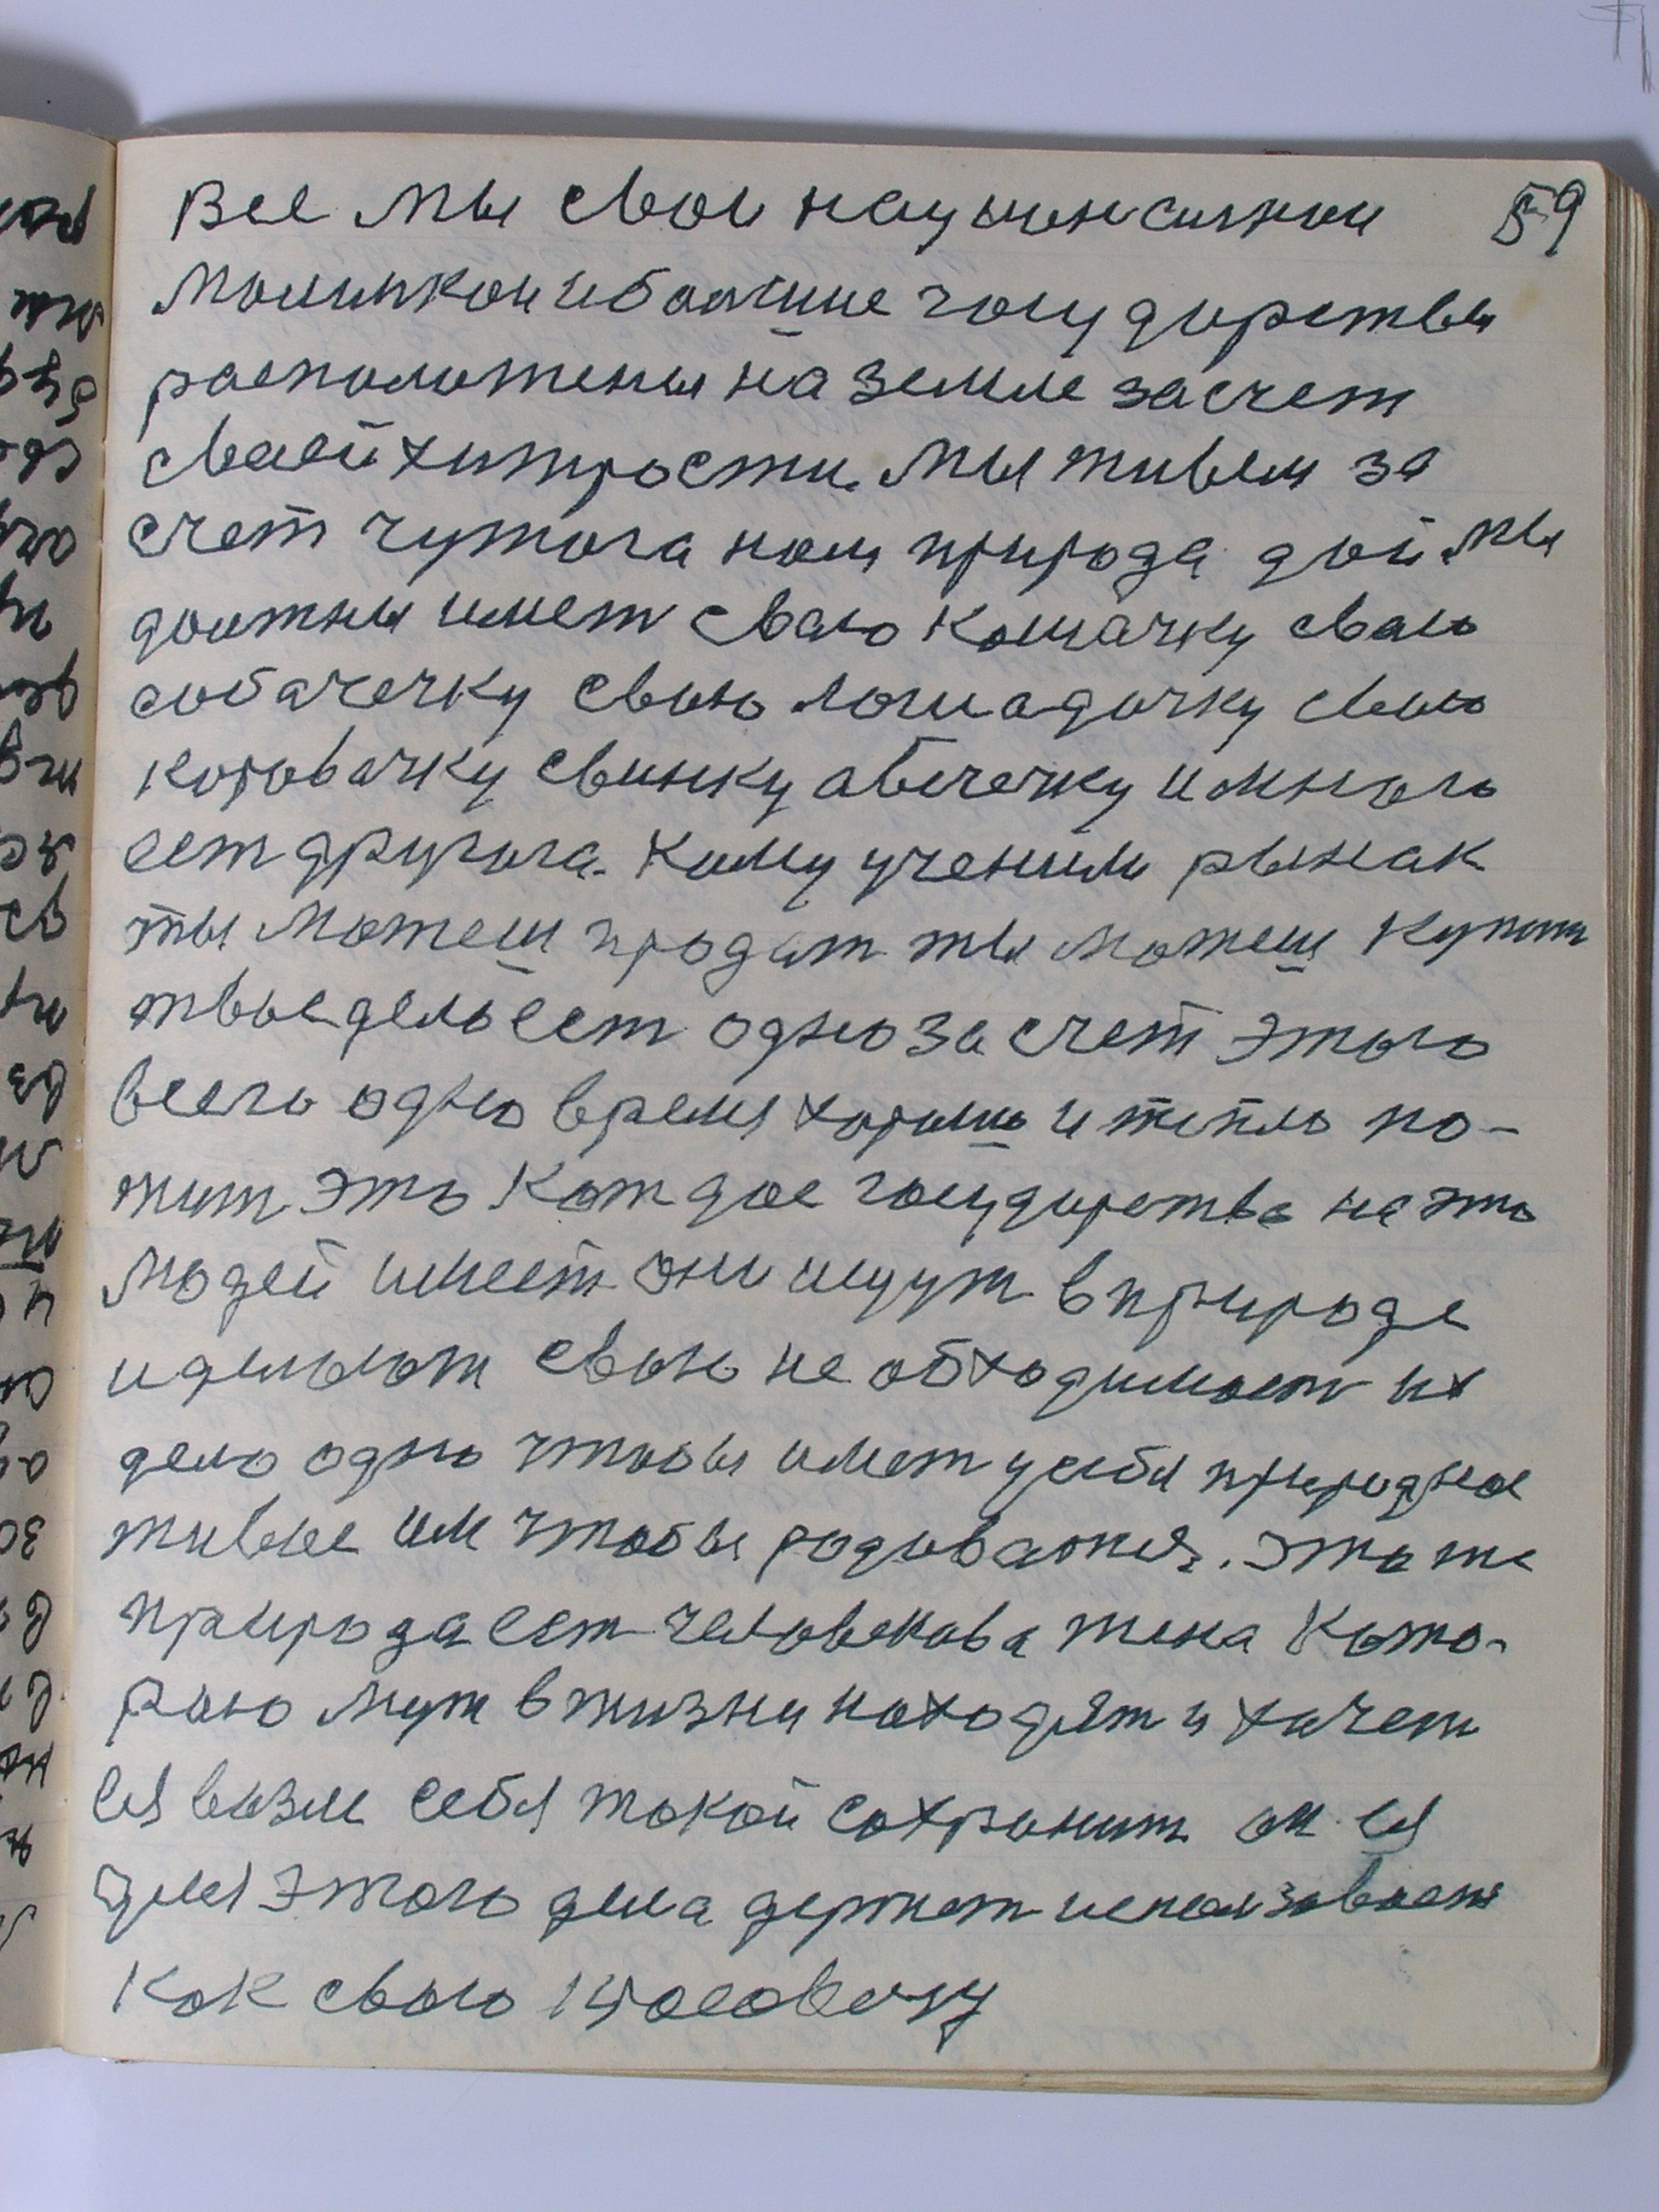 Все мы свои национсилнаи 59
Малинкои и болшие государства
расположены на земле засчет
сваей хитрости. Мы живем за
счет чужога нам природа дай. Мы
должны имет сваю кошачку сваю
собачечку свою лошадачку свою
коровачку свинку авечечку и много
ест другога. Кому ученим рынак
ты можеш продат ты можеш купит
твое дело ест одно за счет этого
всего одно время хорошо и тепло по-
жит. Это каждое государства на это
людей имеет они идут в природе
и делают свою необходимаст их
дело одно чтобы имет у себя природное
живое им чтобы радыватся. Эта же
природа ест человекава жена Кото-
раю муж в жизни находят и хачет
ея возле себя такой сохранит он ея
для этого дела держет исползавает
как свою